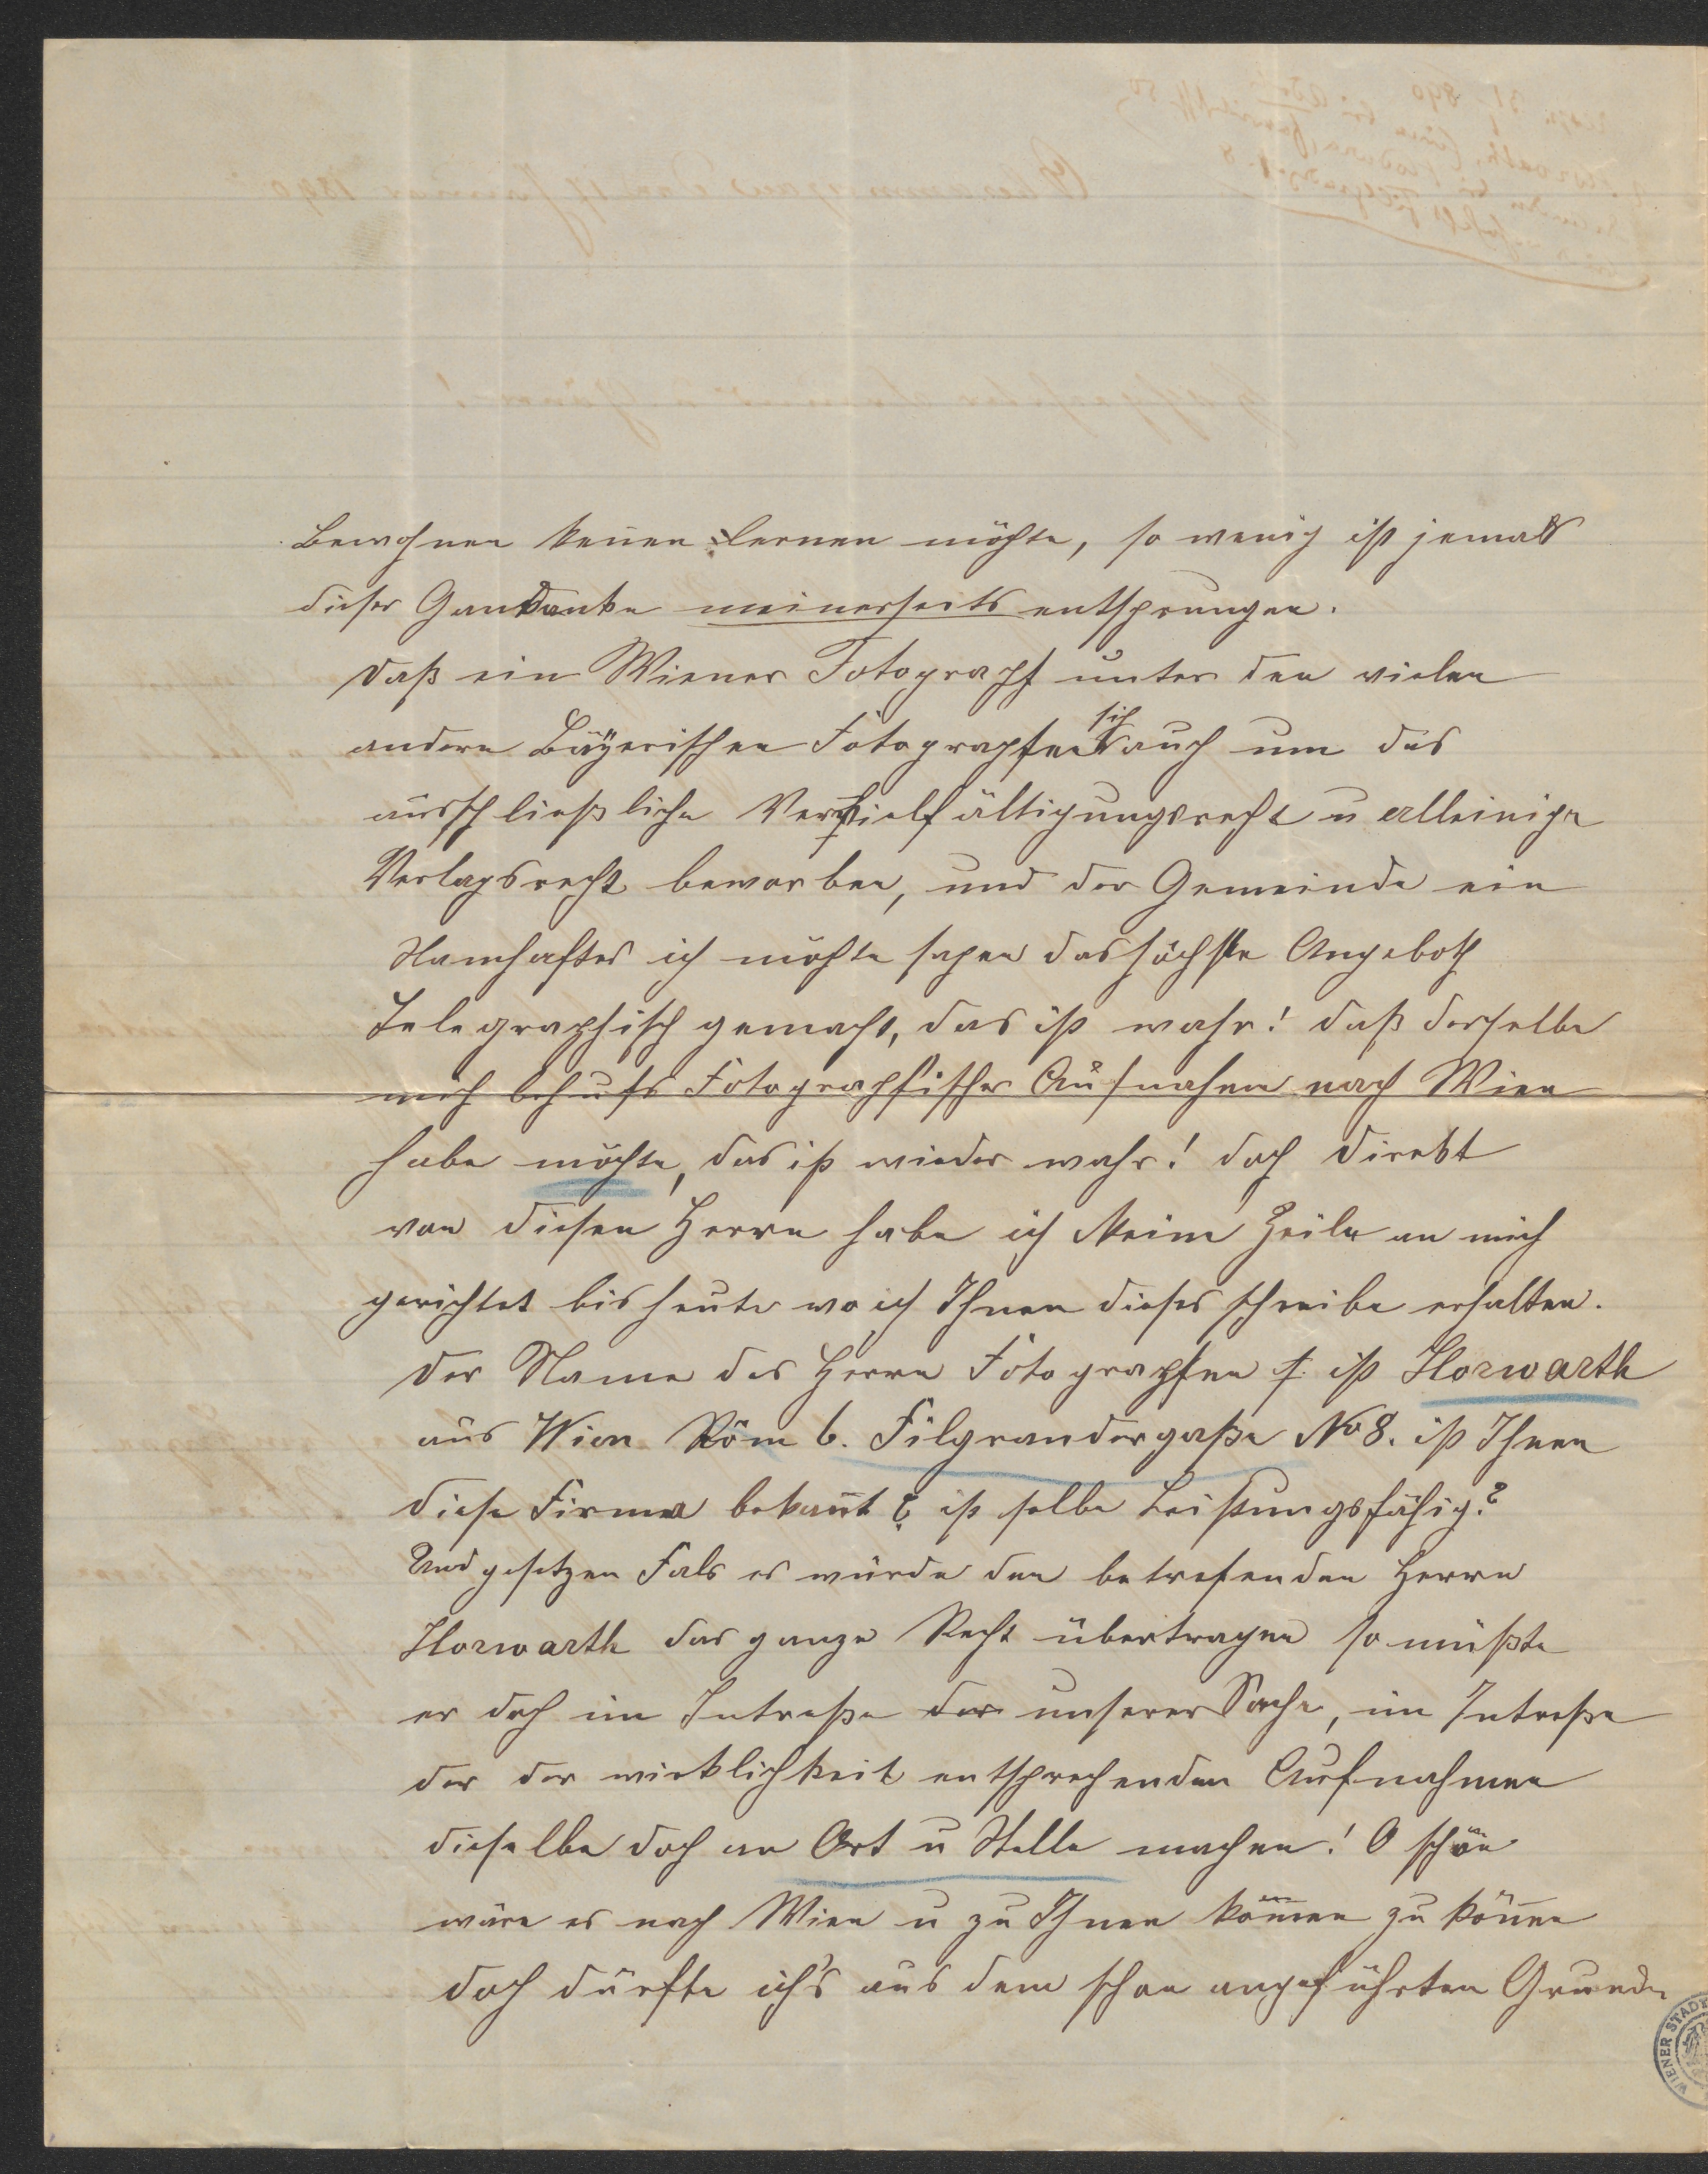 Bewohner keñen lernen möchte, so wenig ist jemals
dieser Gandanke meinerseits entsprungen.
Daß ein Wiener Fotograph unter den vielen
andern Bayerischen Fotographen sich auch um das
ausschließliche Vervielfältigungsrecht u alleinige
Verlagsrecht beworben, und der Gemeinde ein
Namhaftes ich möchte sagen das höchste Angeboth
Telegraphisch gemacht, das ist wahr! daß derselbe
mich behufs Fotographischer Aufnahme nach Wien
habe möchte, das ist wieder wahr! doch direkt
von diesen Herrn habe ich Keine Zeile an mich
gerichtet bis heute wo ich Ihnen dieses schreibe erhalten.
Der Name des Herrn Fotographen ist Horwarth
aus Wien Röm 6. Filgrandergaße No 8. ist Ihnen
diese Firma bekañt & ist selbe Leistungsfähig?
Und gesetzen Fals es würde den betrefenden Herrn
Horwarth das ganze Recht übertragen so müßte
er doch im Intreße der unserer Sache, im Intreße
der der wirklichkeit entsprechenden Aufnahmen
dieselbe doch an Ort u Stelle machen! O schön
wäre es nach Wien u zu Ihnen kom̄en zu köñen
doch dürfte ich's aus dem schon angeführten Grunde
WIENER STADT